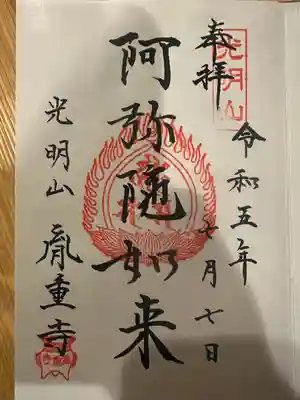 光明山
奉拝
令和五年
七月七日
阿弥陁如来
光明山
胤重寺